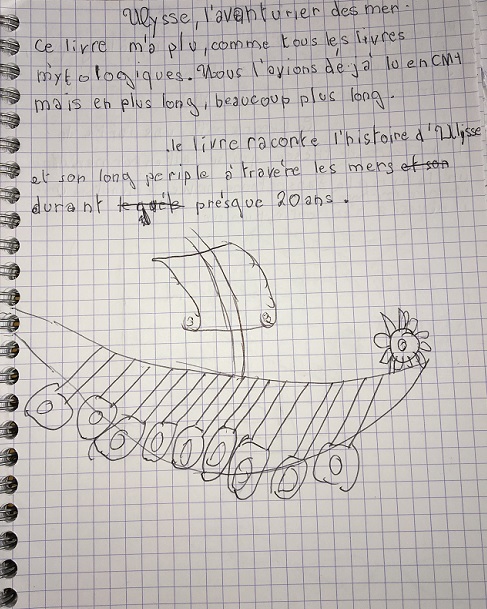 Ulysse, l'aventurier des mer.
Ce livre m'a plu, comme tous les livres
mytologiques. Nous l'avions déjà lu en CM1
mais en plus long, beaucoup plus long.
le livre raconte l'histoire d'Ulisse
et son long periple à travère les mers et son
durant présque 20 ans.